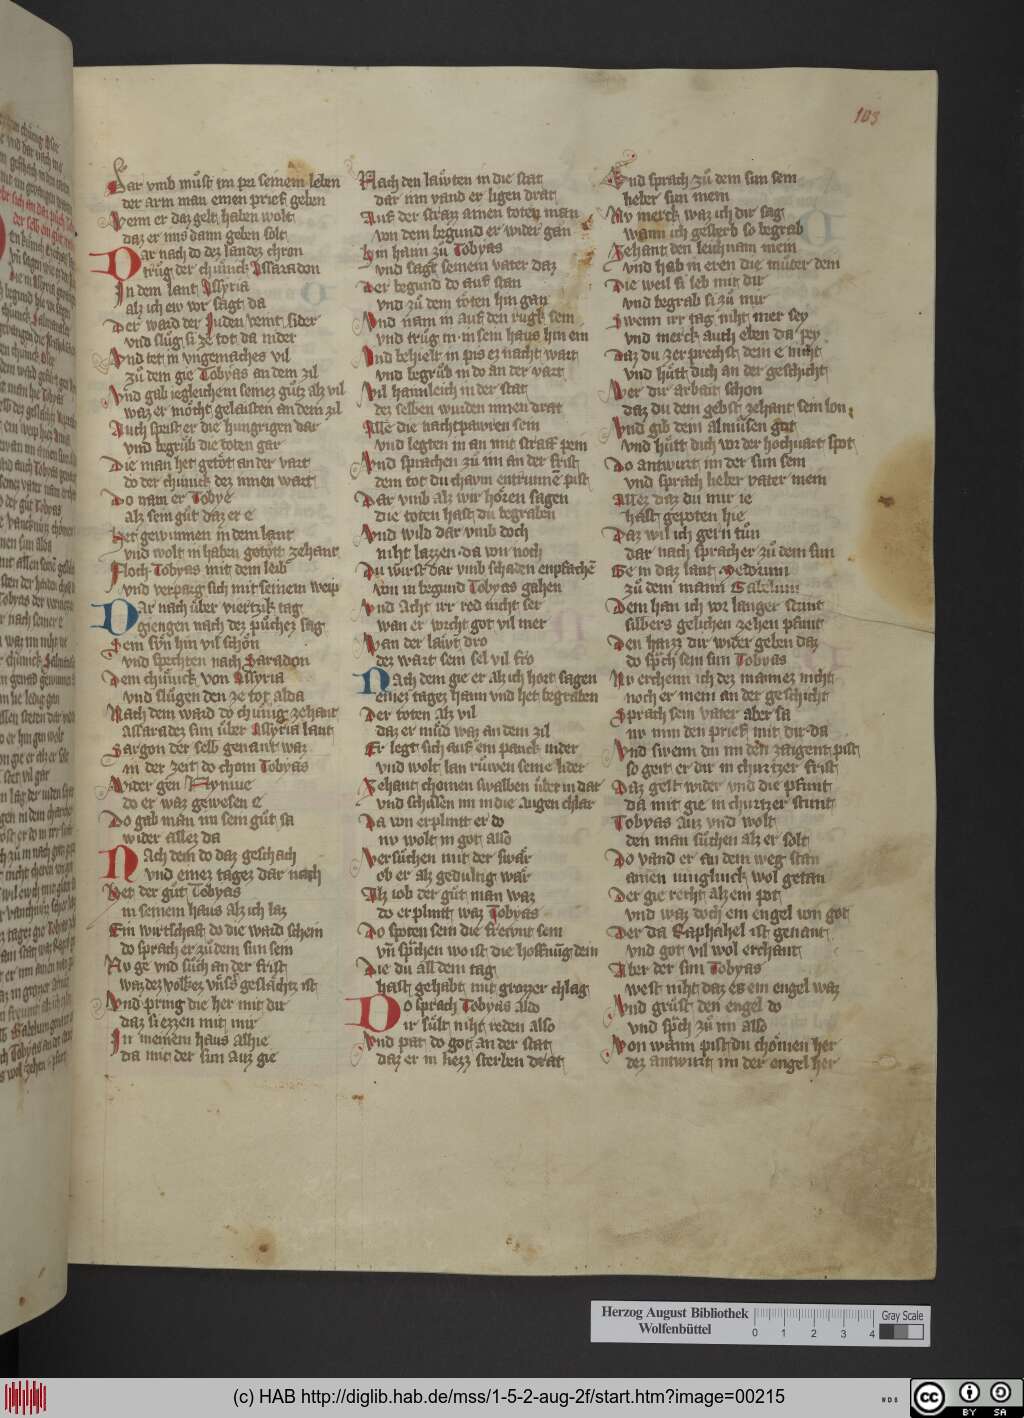 103
Dar vmb müst im pei seinem leben
der arm man einen prief geben
Wenn er daz gelt haben wolt
daz er ims dann geben solt
Dar nach do dez landez chron
trüg der chünick Assaradon
In dem lant Assyria
alz ich ew vor sagt da
Der ward der Juden veint sider
vnd slüg si ze tot da nider
Vnd tet in vngemaches vil
zü dem gie Tobyas an dem zil
Vnd gab iegleichem seinez gütz alz vil
waz er möcht gelaisten an dem zil
Auch speist er die hungrigen dar
vnd begrüb die toten gar
Die man het getöt an der vart
do der chünick dez innen wart
Do nam er Tobye
alz sein güt daz er e
Het gewunnen in dem lant
vnd wolt in haben getött zehant
Floch Tobyas mit dem leib
vnd verparg sich mit seinem weip
Dar nach über viertzik tag
giengen nach dez püchez sag
Sein sün hin vil schön
vnd spechten nach Saradon
Dem chünick von Assyria
vnd slügen den ze tot alda
Nach dem ward do chünig zehant
Assaradez sun über Assyria lant
Sargon der selb genant waz
in der zeit do chom Tobyas
Wider gen Nynive
do er waz gewesen e
Do gab man im sein güt sa
wider allez da
Nach dem do daz geschach
vnd einez tagez dar nach
Het der güt Tobyas
in seinem haus alz ich laz
Ein wirtschaft do die ward schein
do sprach er zü dem sun sein
Nv ge vnd süch an der frist
waz dez volkez vnsers geslächtz ist
Vnd pring die her mit dir
daz si ezzen mit mir
In meinem haus alhie
da mit der sun auz gie
Nach den läwten in die stat
dar inn vand er ligen drat
Auf der strazz ainen toten man
von dem begund er wider gan
Hin haim zü Tobyas
vnd sagt seinem vater daz
Der begund do auf stan
vnd zü dem toten hin gan
Vnd nam in auf den rugk sein
vnd trüg in in sein haus hin ein
Vnd behielt in pis ez nacht wart
vnd begrüb in do an der vart
Vil haimleich in der stat
dez selben wurden innen drat
Alle die nachtpawren sein
vnd legten in an mit straff pein
Vnd sprachen zü im an der frist
dem tot du chawm entrunnen pist
Dar vmb alz wir hören sagen
die toten hast du begraben
Vnd wild dar vmb doch
niht lazzen da von noch
Du wirst dar vmb schaden enpfachen
von in begund Tobyas gahen
Vnd Acht irr red nicht ser
wan er vorcht got vil mer
Wan der läwt dro
dez wart sein sel vil fro
Nach dem gie er alz ich hort sagen
einez tagez haim vnd het begraben
Der toten alz vil
daz er müd waz an dem zil
Er legt sich auf ein panck nider
vnd wolt lan rüwen seine lider
Zehant chomen swalben über in dar
vnd schissen im in die Augen chlar
Da von erplintt er do
nv wolt in got also
Versüchen mit der swär
ob er alz gedultig wär
Alz iob der güt man waz
do erplintt waz Tobyas
Do spoten sein die frewnt sein
vnd sprachen wo ist die hoffnung dein
Die du all dein tag
hast gehabt mit grozzer chlag
Do sprach Tobyas also
ir sült niht reden also
Vnd pat do got an der stat
daz er in liezz sterben drat
Vnd sprach zü dem sun sein
lieber sun mein
Nv merck waz ich dir sag
wann ich gestirb so begrab
Zehant den leichnam mein
vnd hab in eren die müter dein
Die weil si leb mit dir
vnd begrab si zü mir
Swenn irr tag niht mer sey
vnd merck auch eben da pey
Daz du zerprechst dein e nicht
vnd hütt dich an der geschicht
Wer dir arbait schon
daz du dem gebst zehant sein lon
Vnd gib dein almüsen gut
vnd hütt dich vor der hochuart spot
Do antwurt im der sun sein
vnd sprach lieber vater mein
Allez daz du mir ie
hast gepoten hie
Daz wil ich gern tün
dar nach sprach er zü dem sun
Ge in daz lant Medorum
zü dem mann Gabelum
Dem han ich vor langer stunt
silbers gelichen zehen pfunt
Den haizz dir wider geben daz
do sprach sein sun Tobyas
Nv erchenn ich dez mannez nicht
noch er mein an der geschicht
Sprach sein vater aber sa
nv nim den prief mit dir da
Vnd swenn du im den zaigent pist
so geit er dir in churtzer frist
Daz gelt wider vnd die pfunt
da mit gie in churtzer stunt
Tobyas auz vnd wolt
den man süchen alz er solt
Do vand er an dem weg stan
ainen iunglinck wol getan
Der gie recht alz ein pot
vnd waz doch ein engel von got
Der da Raphahel ist genant
vnd got vil wol erchant
Aber der sun Tobyas
west niht daz es ein engel waz
Vnd grüst den engel do
vnd sprach zü im also
Von wann pist du chömen her
dez antwurtt im der engel her
Herzog August Bibliothek
Wolfenbüttel
0 1 2 3 4
Gray Scale
(c) HAB http://diglib.hab.de/mss/1-5-2-aug-2f/start.htm?image=00215
WDB
cc BY SA